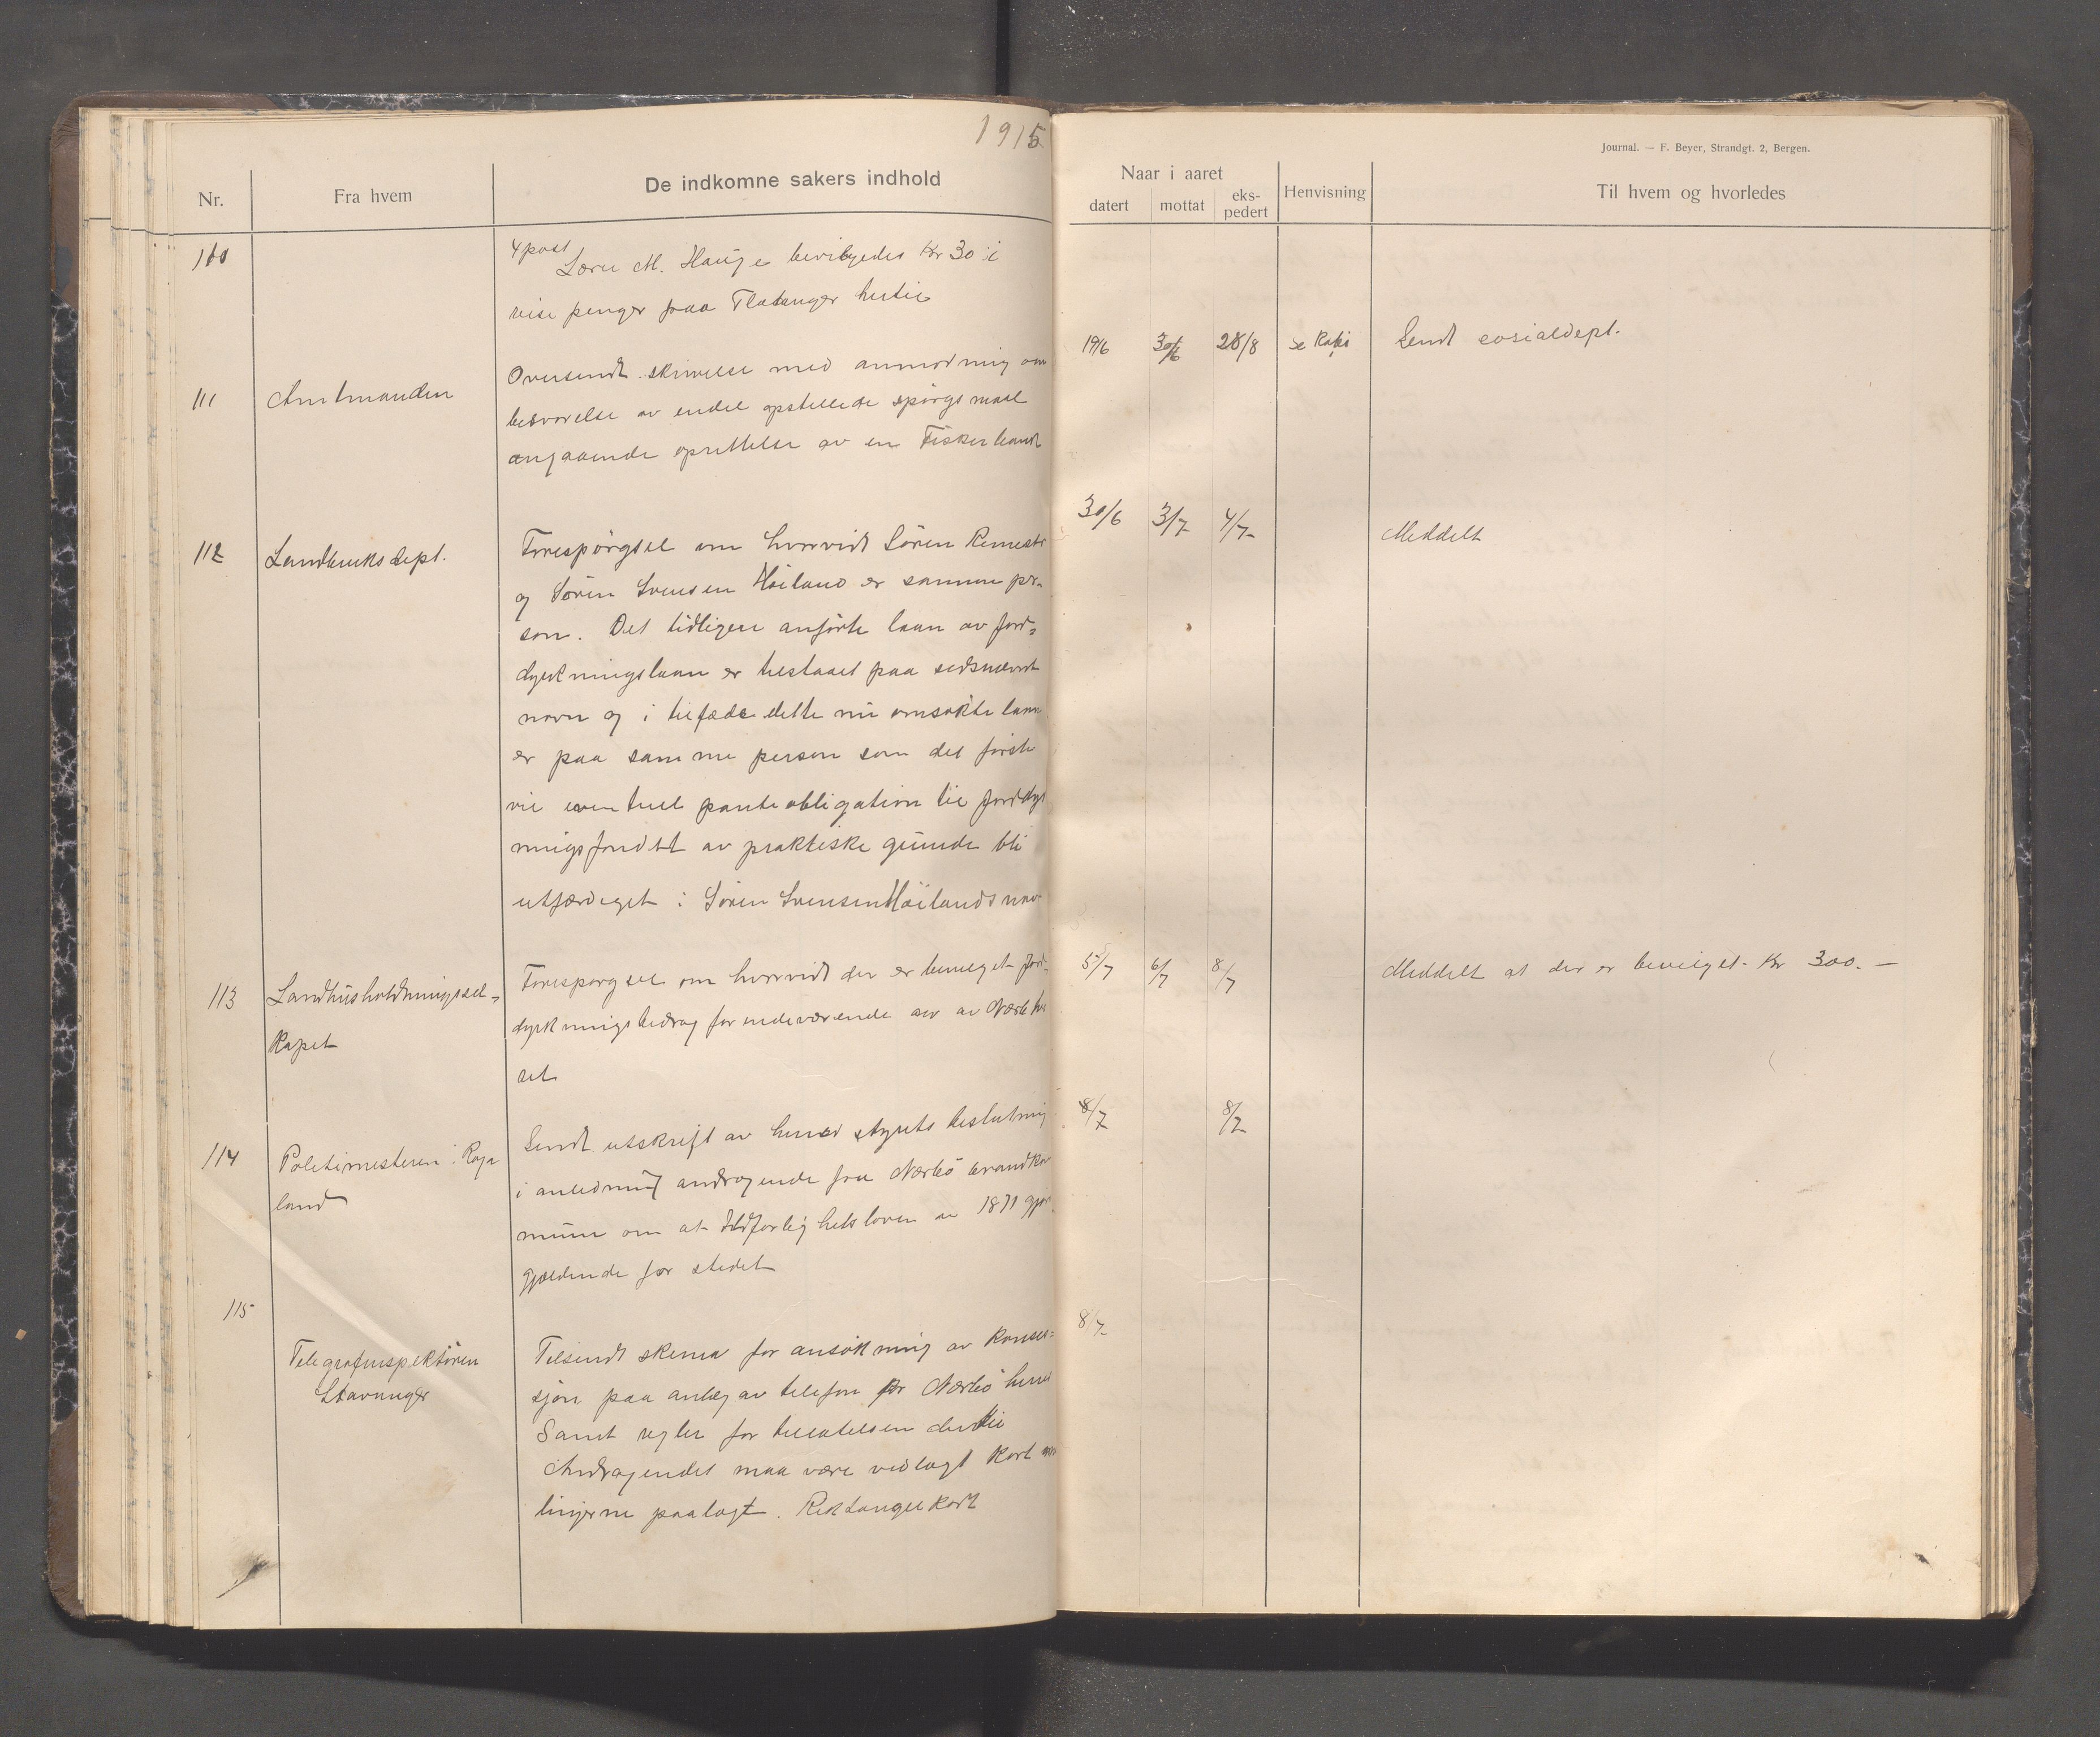 1915
Nr.
Fra hvem
De indkomne sakers indhold
110
4 post
Lærer M. Hauge bevilgedes Kr 30 i
reise penger paa Flatanger hertil
111
Amtmanden
Oversendt skrivelse med anmodning om
besvarelse av endel opstillede spørgsmaal
angaaende oprettelse av en Fiskerbank
112
Landbruksdept.
Forespørgsel om hvorvidt Søren
og Søren Svensen Høiland er samme per-
son. Det tidligere anførte laan av jord-
dyrkningslaan er tilstaaet paa sidsnævnte
navn og i tilfælde dette nu ansøkte laan
er paa samme person som det første
vil eventuel panteobligation til jorddyrk
ningsfondet av praktiske grunde bli
utfærdiget i Søren Svensen Høilands navn
113
Landhusholdningssel-
kapet
Forespørgsel om hvorvidt der er bevilget jord-
dyrkningsbidrag for indeværende aar av Nærbø her
ret
114
Politimesteren i Roga
land
Sendt utskrift av herredstyrets beslutning
i anledning andragende fra Nærbø brandkom
mune om at Ildfarlighetsloven av 1871 gjøres
gjældende for stedet
115
Telegrafinspektøren
Stavanger
Tilsendt skema for ansøkning av konses-
sjon paa anlæg av telefon for Nærbø herred
Samt regler for tillatelsen dertil
Andragendet maa være vedlagt kart med
linjerne paalagt. Rektangelkart
Journal. — F. Beyer, Strandgt. 2, Bergen.
Naar i aaret
datert
mottat
eks-
pedert
Henvisning
Til hvem og hvorledes
19/6 30/6 28/8 Sendt sosialdept.
30/6 3/7 4/7 Meddelt
5/7 6/7 8/7 Meddelt at der er bevilget Kr 300.—
8/7 8/7
8/7